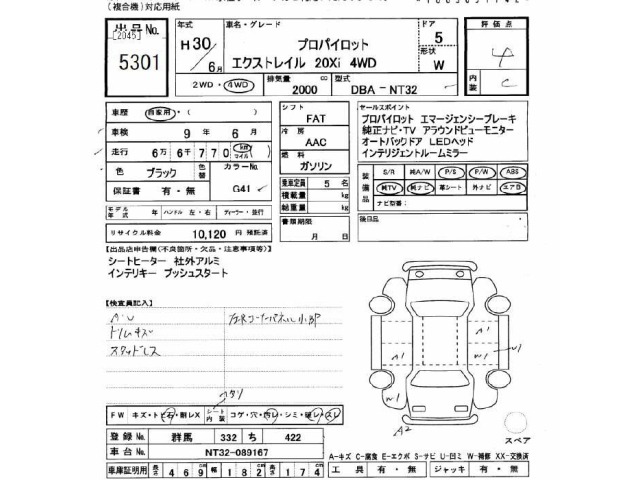 (複合機)対応用紙
出品No. 年式 車名・グレード ドア 評価点
[2045] H30 プロパイロット 5
5301 6月 エクストレイル 20Xi 4WD 形状 W
2WD・4WD 排気量 2000 cc 型式 DBA-NT32 内装 C
車歴 自家用 シフト FAT セールスポイント
車検 9年 6月 冷房 AAC プロパイロット エマージェンシーブレーキ
純正ナビ・TV アラウンドビューモニター
オートバックドア LEDヘッド
インテリジェントルームミラー
走行 6万6千770 km マイル 燃料 ガソリン
色 ブラック 色替 カラーNo. G41
保証書 有・無
乗車定員 5名
積載量 kg
総重量 kg
装備品 S/R 純A/W P/S P/W ABS
純TV 純ナビ 革シート 外ナビ エアB
ナビ型番:
モデル年式 年 ハンドル 左・右 ディーラー・並行
書類期限 月 日
後日品
リサイクル料金 10,120 円 預託済
【出品店申告欄(不良箇所・欠品・注意事項等)】
シートヒーター 社外アルミ
インテリキー プッシュスタート
【検査員記入】
A・U
トリムキズ
スタッドレス
A1
A1
W1
W1
W1
A2
スペア
FW キズ・トビ石・削レX シート内装 コゲ・穴・汚レ・シミ・破レ・スレ
登録No. 群馬 332 ち 422
車台No. NT32-089167
A-キズ C-腐食 E-エクボ S-サビ U-凹ミ W-補修 XX-交換済
車庫証明用 長さ 469 幅 182 高さ 174 工具 有・無 ジャッキ 有・無